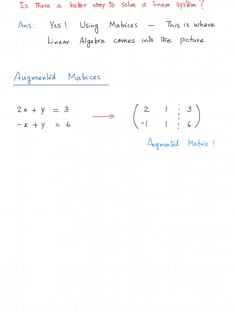 Is there a better way to solve a linear system ?
Ans: Yes ! Using Matrices — This is where
Linear Algebra comes into the picture.
Augmented Matrices
2x + y = 3
-x + y = 6
2 1 3
-1 1 6
Augmented Matrix !